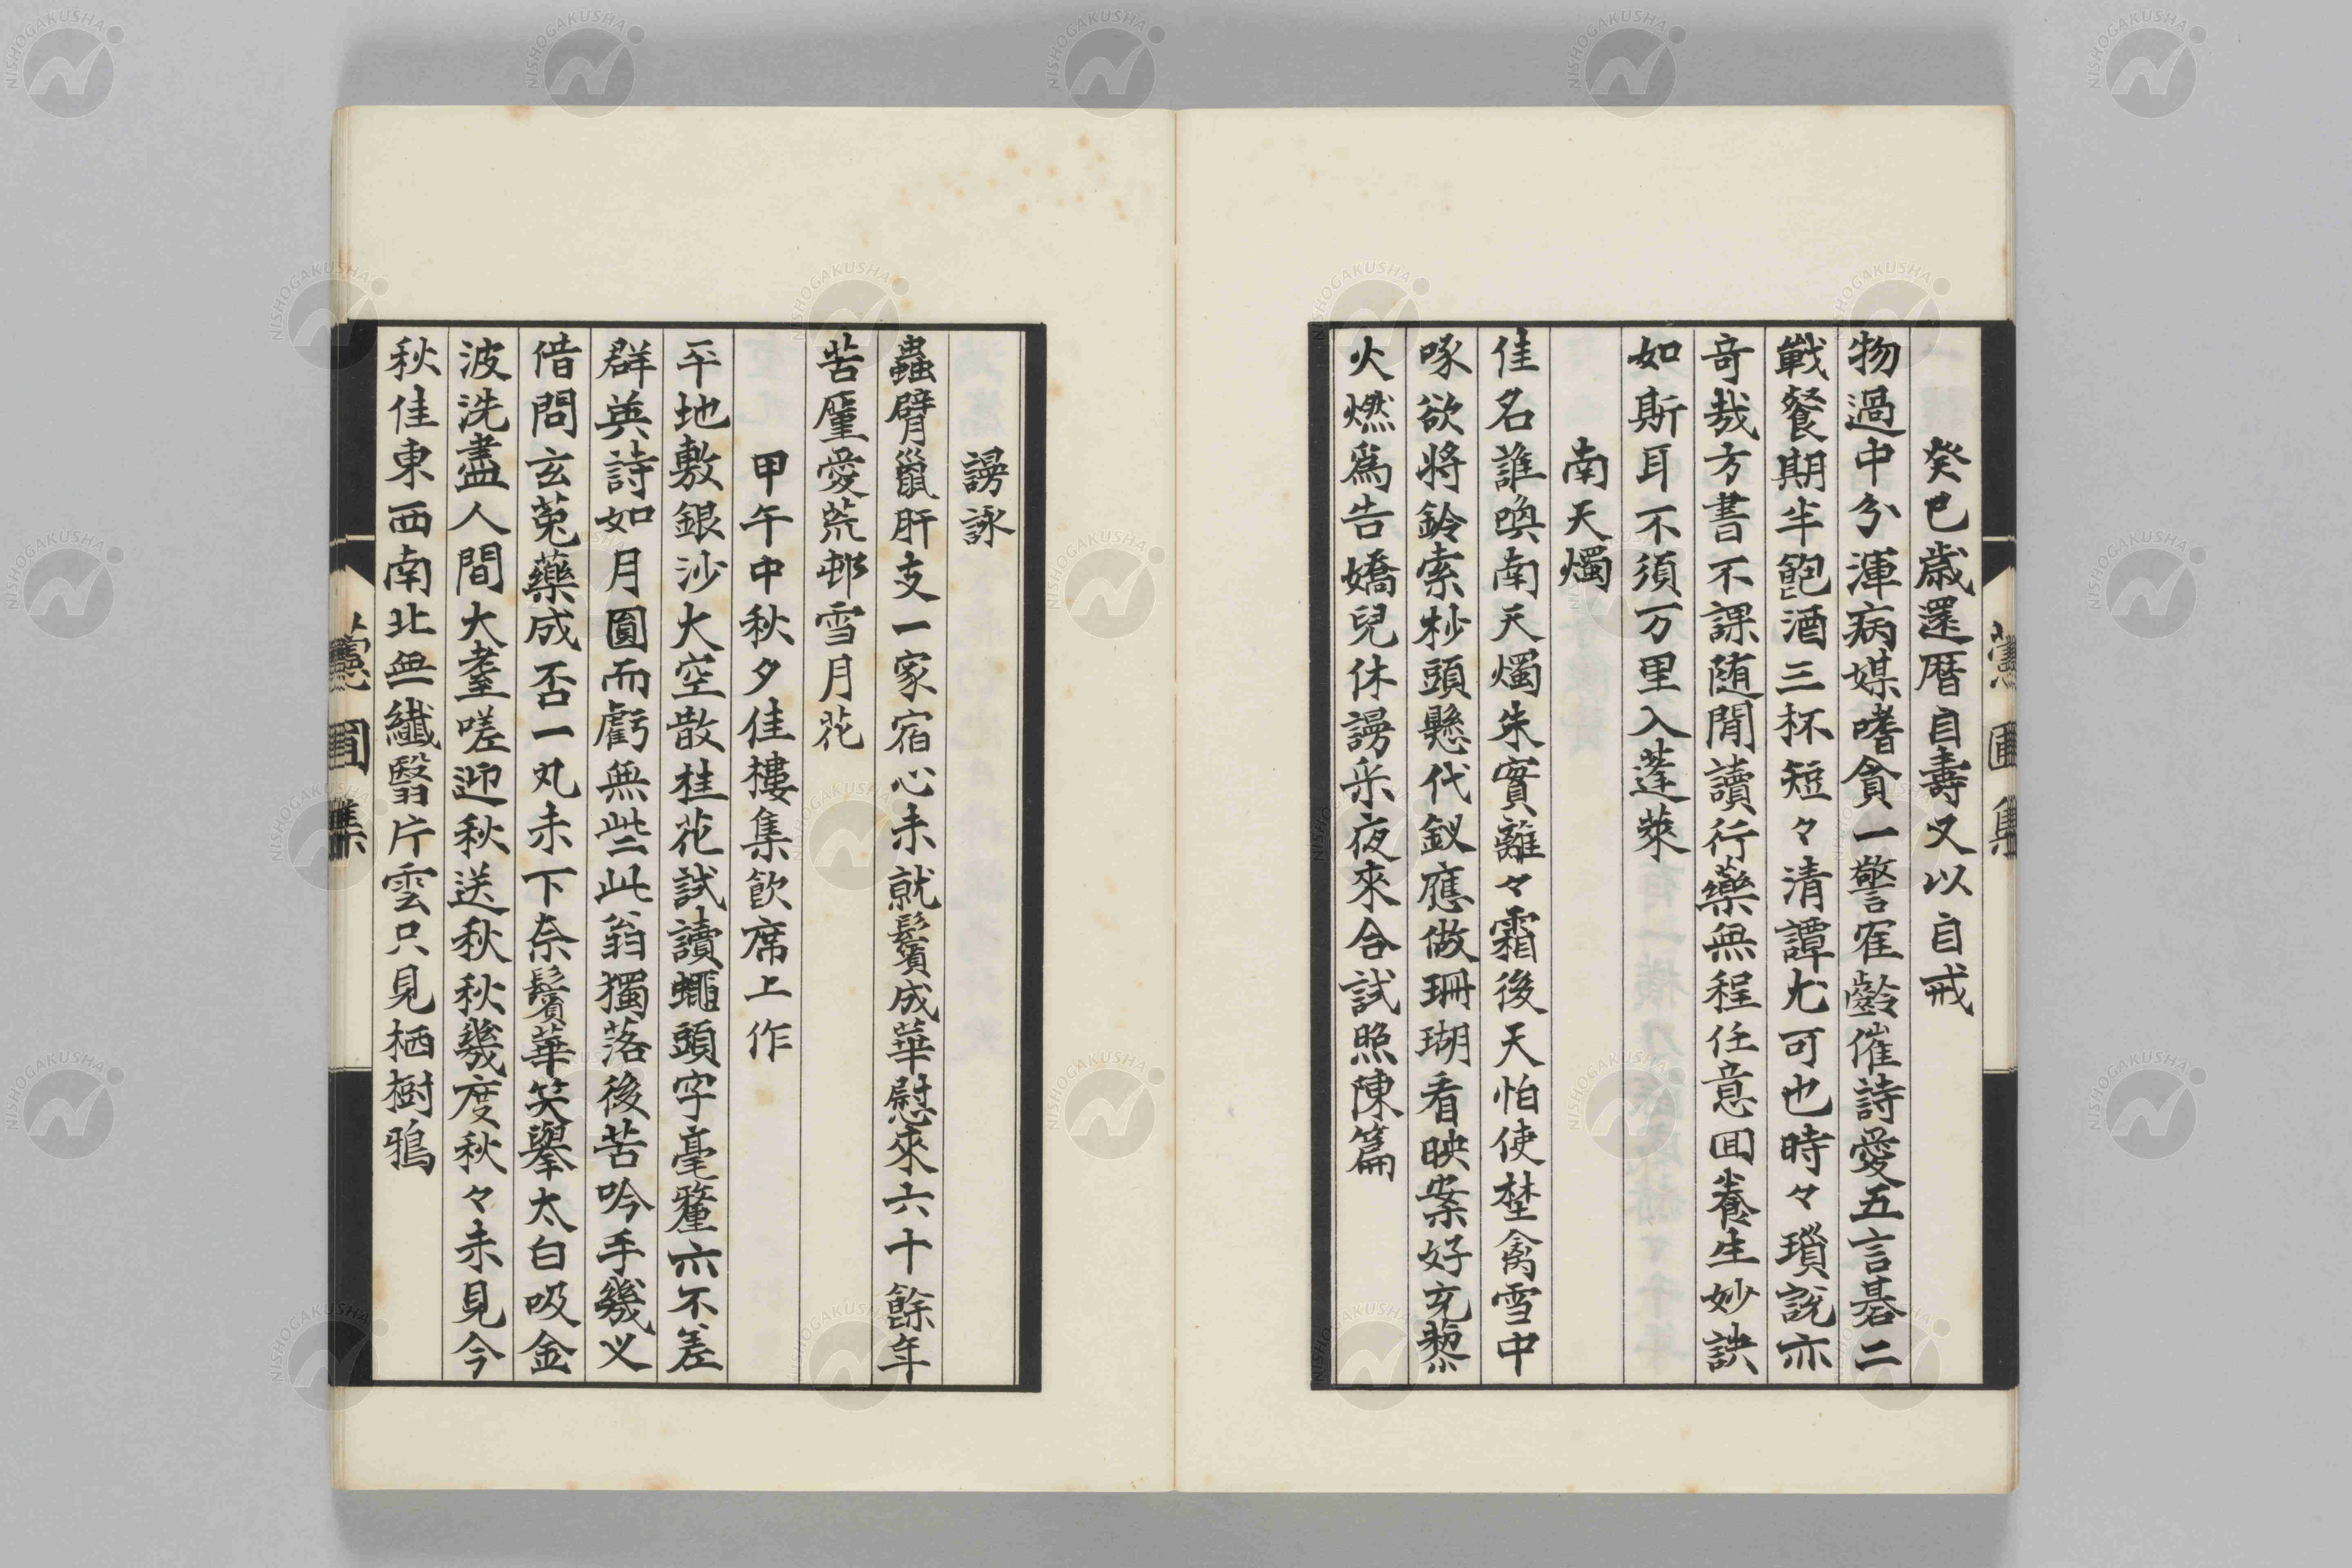 癸巳歳還暦自壽又以自戒
物過中分渾病媒嗜貪一警寉齡催詩愛五言碁二
戰餐期半飽酒三杯短々清譚尤可也時々瑣説亦
奇哉方書不課随閒讀行藥無程任意囬養生妙訣
如斯耳不須万里入蓬萊
南天燭
佳名誰喚南天燭朱實離々霜後天怕使埜禽雪中
啄欲將鈴索杪頭懸代釵應做珊瑚看映案好充藜
火燃爲告嬌兒休謾采夜來合試照陳篇
謾詠
蟲臂鼠肝支一家宿心未就鬢成華慰來六十餘年
苦廑愛荒邨雪月花
甲午中秋夕佳樓集飮席上作
平地敷銀沙大空散桂花試讀蠅頭字毫釐亦不差
群英詩如月圓而虧無些此翁獨落後苦吟手幾义
借問玄兎藥成否一丸未下奈鬢華笑擧太白吸金
波洗盡人間大耋嗟迎秋送秋秋幾度秋々未見今
秋佳東西南北無纖翳片雲只見栖樹鴉
NISHOGAKUSHA